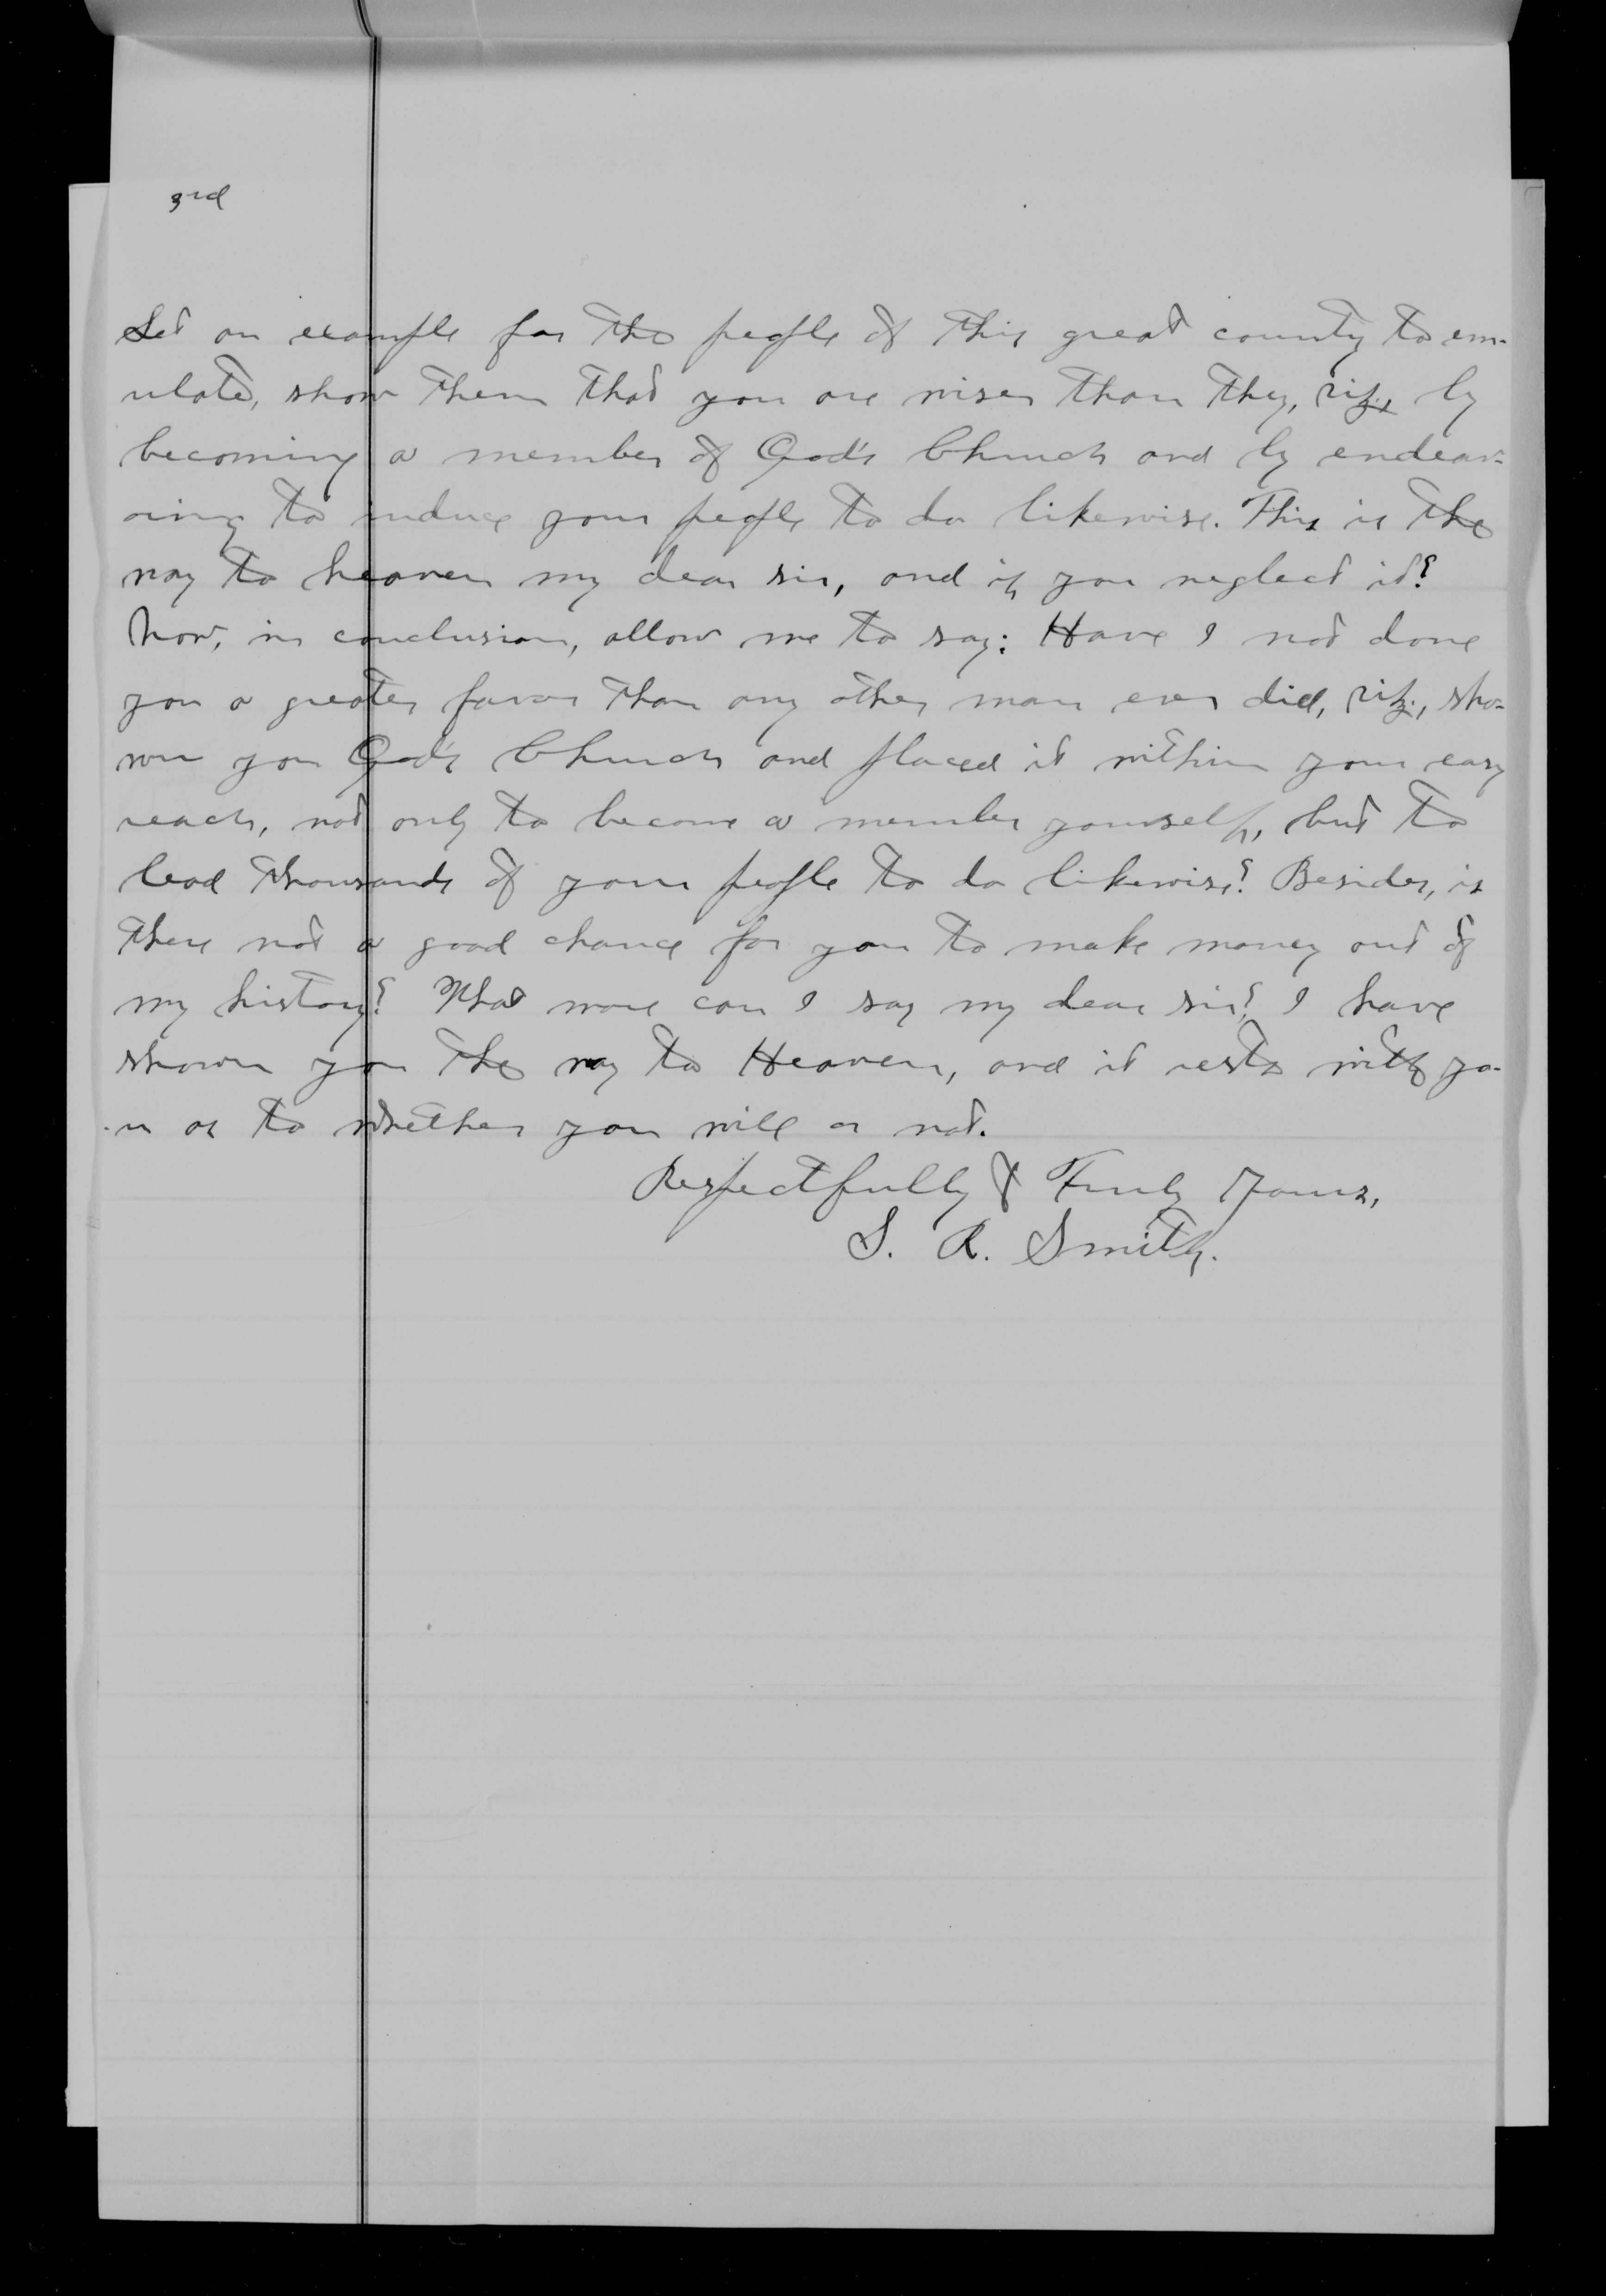 3rd
Set an example for the people of this great county to em-
ulate, show them that you are wiser than they, viz., by
becoming a member of God's Church and by endeav-
oring to induce your people to do likewise. This is the
way to heaven my dear sir, and if you neglect it?
Now, in conclusion, allow me to say: Have I not done
you a greater favor than any other man ever did, viz., sho-
wn you God's Church and placed it within your easy
reach, not only to become a member yourself, but to
lead thousands of your people to do likewise? Besides, is
there not a good chance for you to make money out of
my history? What more can I say my dear sir? I have
shown you the way to Heaven, and it rests with yo-
u as to whether you will or not.
Respectfully & Truly Yours,
S. R. Smith.